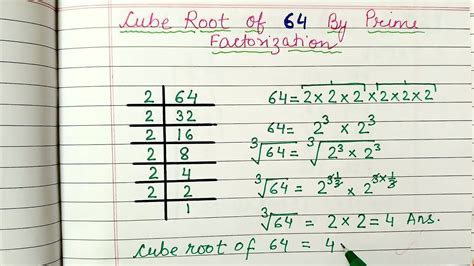 Cube Root Of 64 By Prime
Factorization
2 | 64
2 | 32
2 | 16
2 | 8
2 | 4
2 | 2
1
64 = 2 × 2 × 2 × 2 × 2 × 2
64 = 2³ × 2³
³√64 = ³√2³ × 2³
³√64 = 2^(3×1/3) × 2^(3×1/3)
³√64 = 2 × 2 = 4 Ans.
Cube root of 64 = 4